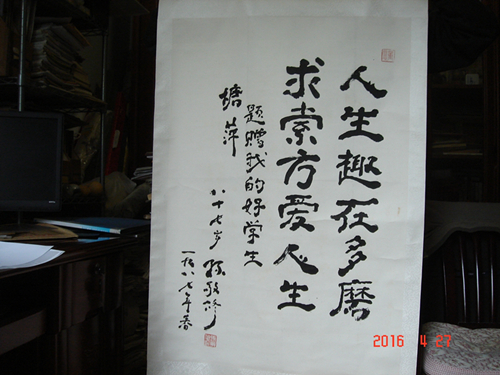 人生趣在多磨
求索方爱人生
题赠我的好学生
萍
八十七岁 孙敬修
一九八七年春
2016 4 27